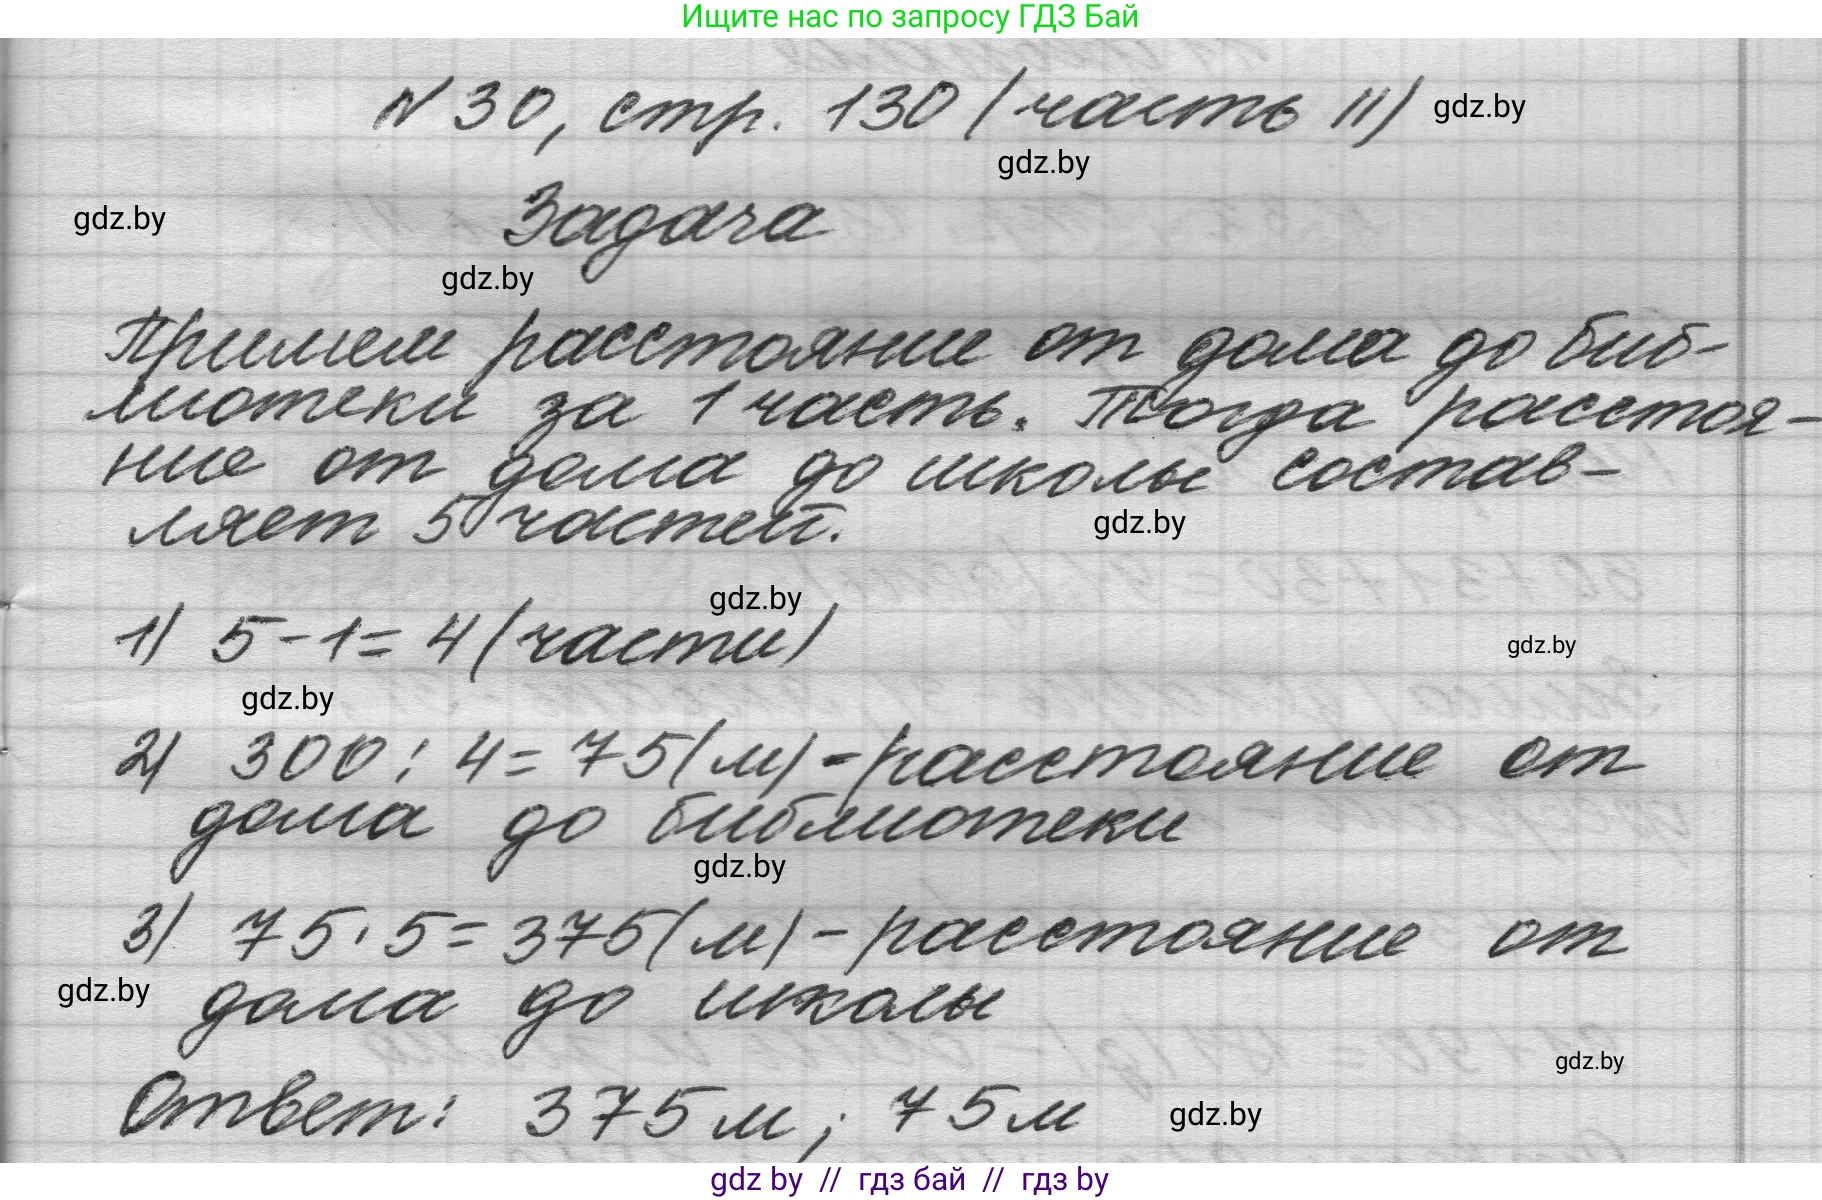 Ищите нас по запросу ГДЗ Бай
№ 30, стр. 130 (часть II) gdz.by
gdz.by
gdz.by
Задача
gdz.by
Примем расстояние от дома до биб-
лиотеки за 1 часть. Тогда расстоя-
ние от дома до школы состав-
ляет 5 частей.
gdz.by
gdz.by
1) 5 - 1 = 4 (части)
gdz.by
gdz.by
2) 300 : 4 = 75 (м) - расстояние от
дома до библиотеки
gdz.by
3) 75 · 5 = 375 (м) - расстояние от
gdz.by дома до школы
gdz.by
Ответ: 375 м ; 75 м gdz.by
gdz by // гдз бай // гдз by